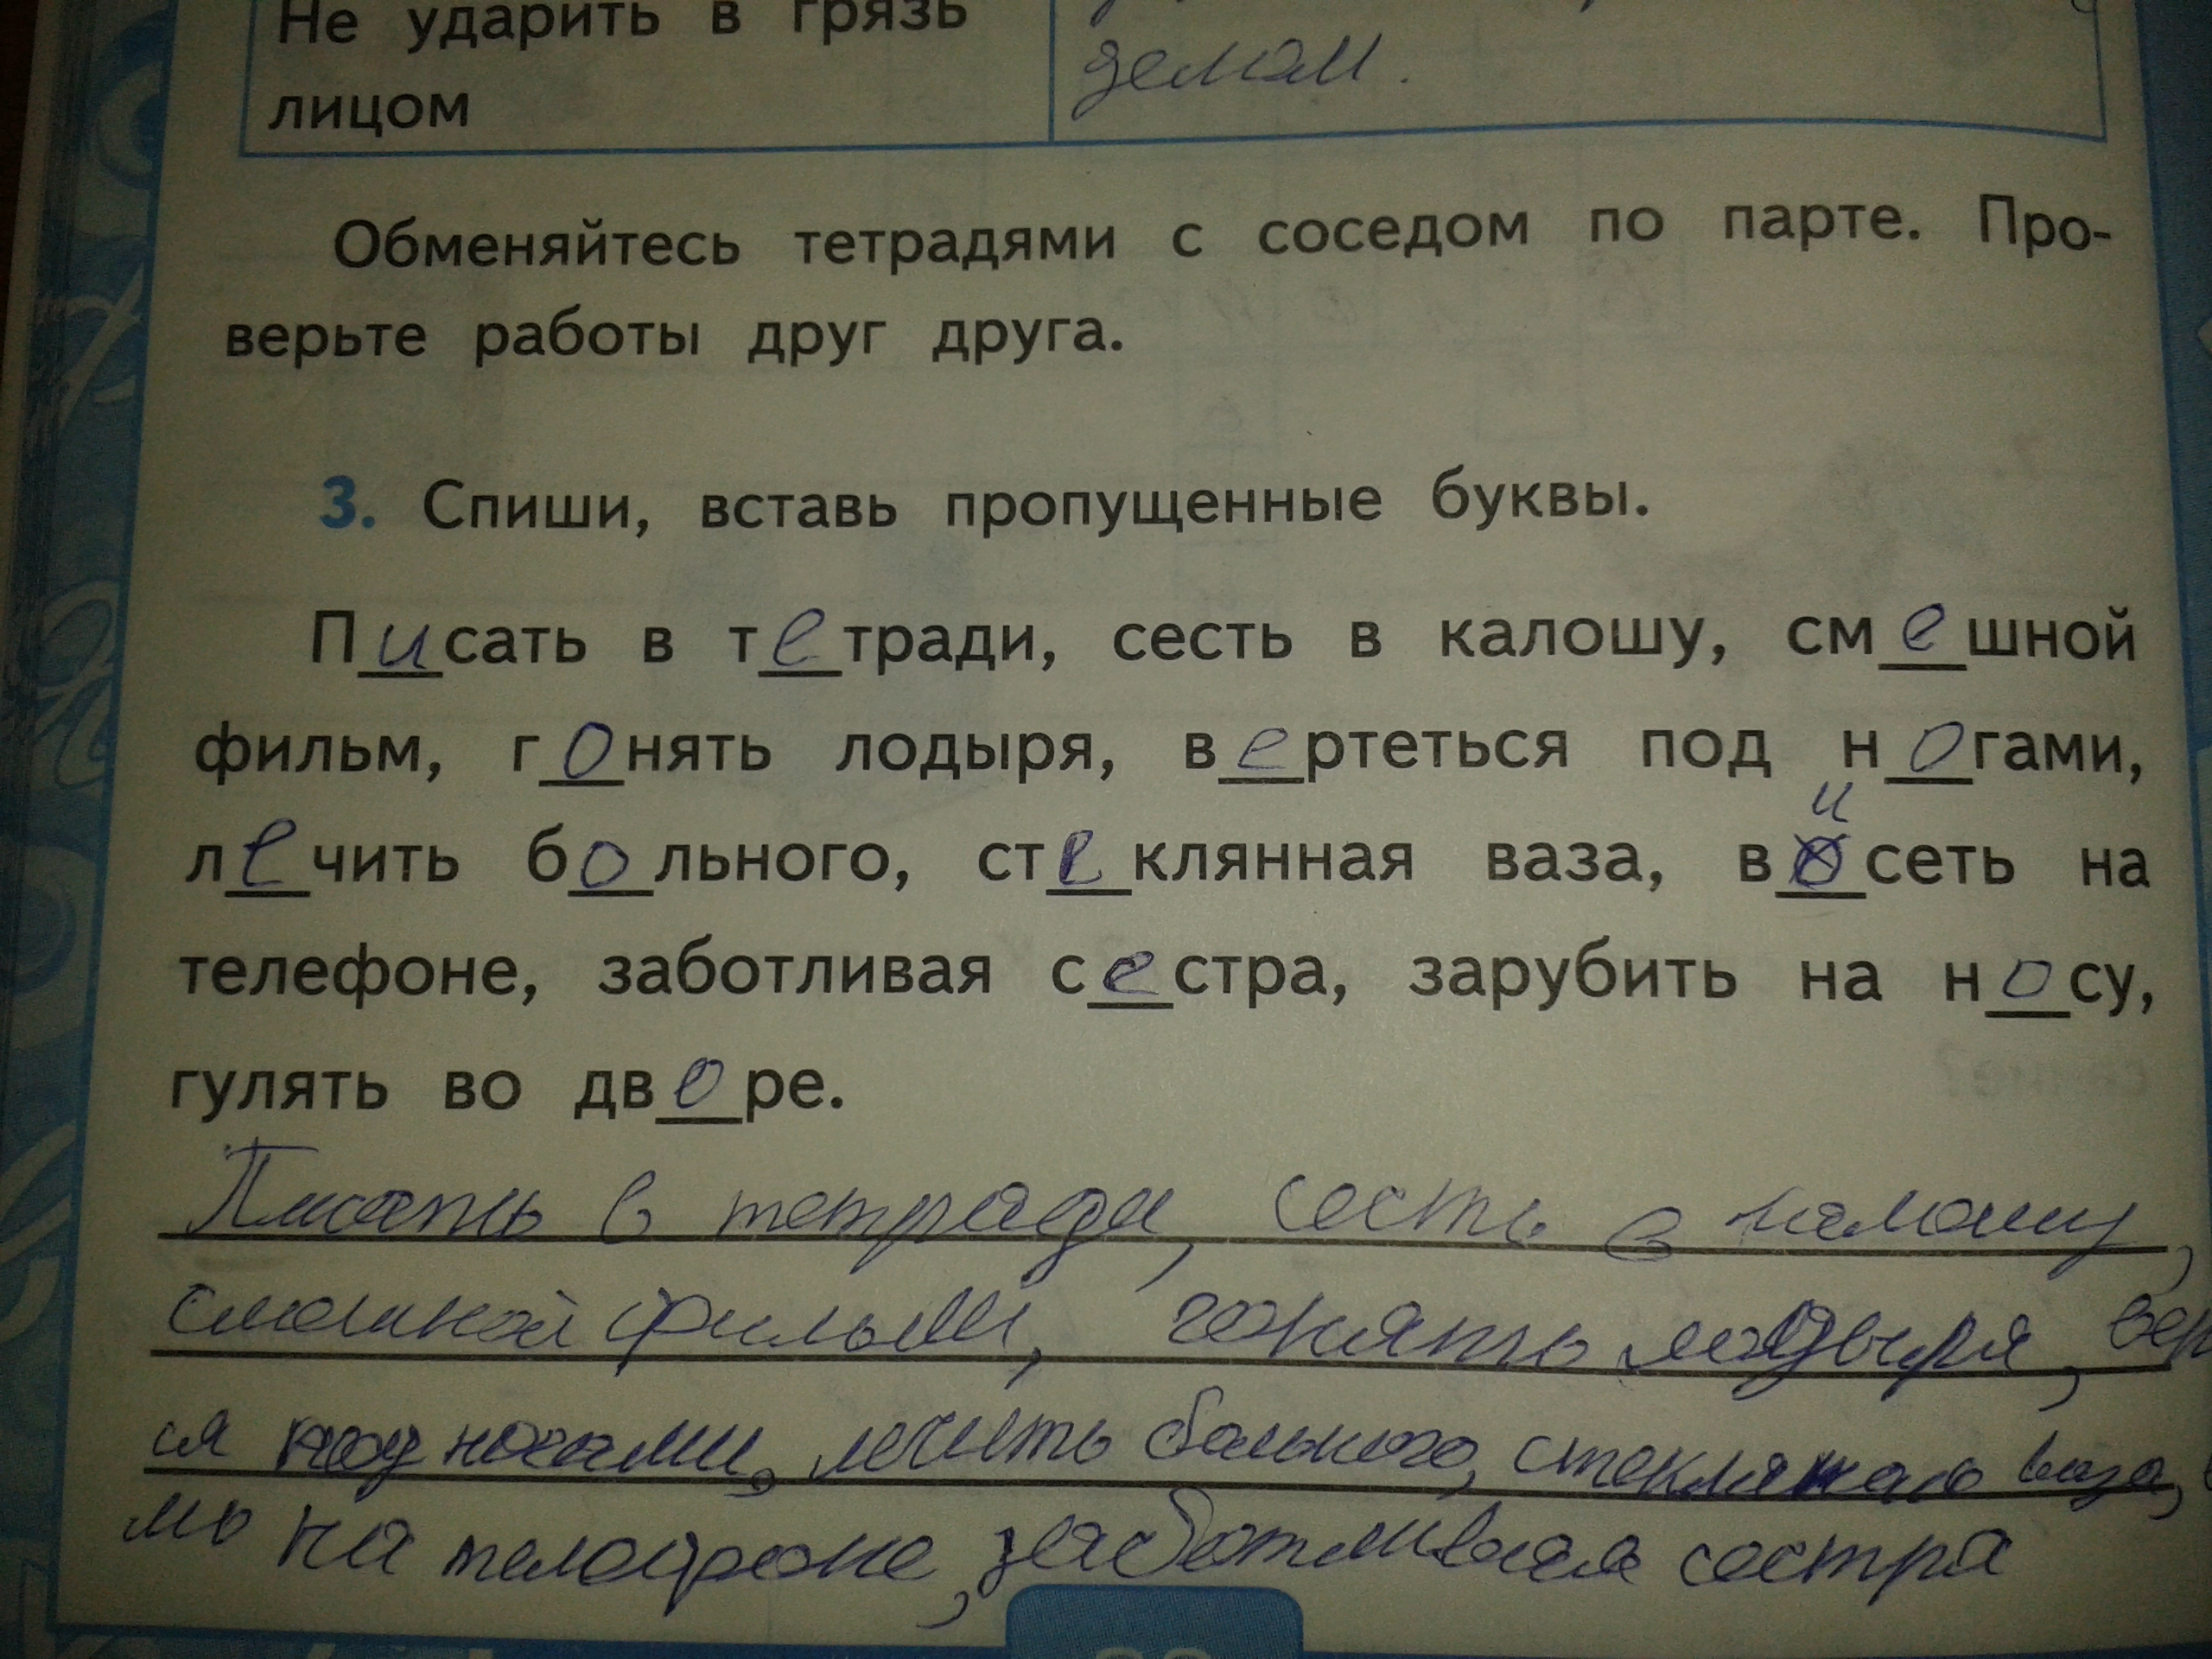 Не ударить в грязь
лицом
делом.
Обменяйтесь тетрадями с соседом по парте. Про-
верьте работы друг друга.
3. Спиши, вставь пропущенные буквы.
Писать в тетради, сесть в калошу, смешной
фильм, гонять лодыря, вертеться под ногами,
и
лечить больного, стеклянная ваза, восеть на
телефоне, заботливая сестра, зарубить на носу,
гулять во дворе.
Писать в тетради, сесть в калошу,
смешной фильм, гонять лодыря, вер
ся под ногами, лечить больного, стекляная ваза,
ть на телефоне, заботливая сестра